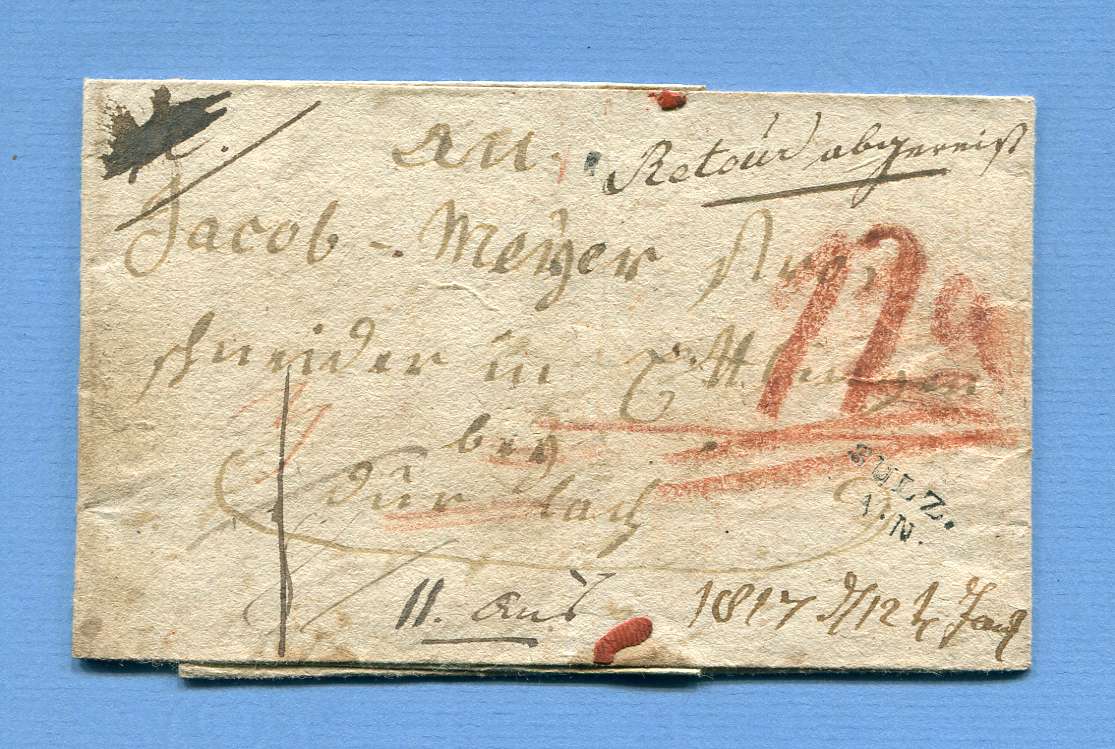 An
Retour abgereist
Jacob - Meÿer
schneider in Ettlingen
beÿ
Durlach
SULZ.
A.N.
11. Aus
1817 12 Jan